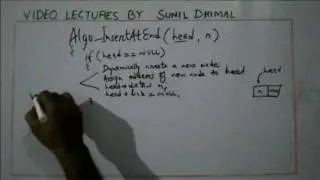 VIDEO LECTURES BY SUNIL DHIMAL
Algo_InsertAtEnd (head, n)
{ if (head == NULL)
{ Dynamically create a new node
Assign address of new node to head
head→data = n,
head→link = NULL,
}
head
n